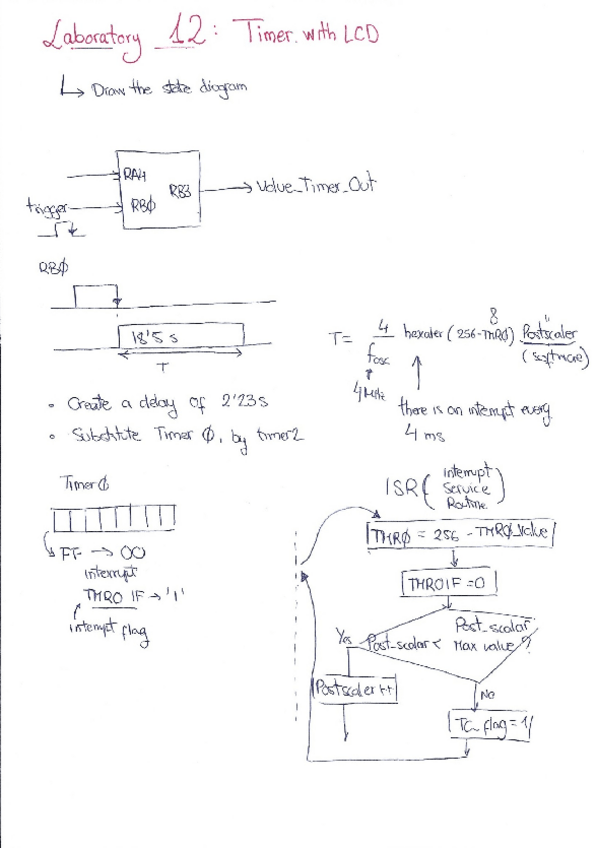 Laboratory 12: Timer with LCD
↳ Draw the state diagram
RA4
RB3
RBØ
→ Value_Timer_Out
trigger
RBØ
18'5 s
T
T = 4 / fosc (256-TMRØ) Postscaler
8
(software)
4 MHz
there is an interrupt every
4 ms
• Create a delay of 2'23s
• Substitute Timer Ø, by timer2
Timer Ø
FF → 00
interrupt
TMRO IF → '1'
interrupt flag
ISR (Interrupt
Service
Routine)
TMRØ = 256 - TMRØ_Value
TMROIF = 0
Yes
Post_scalar <
Post_scalar
Max value?
Postscaler ++
No
flag = 1